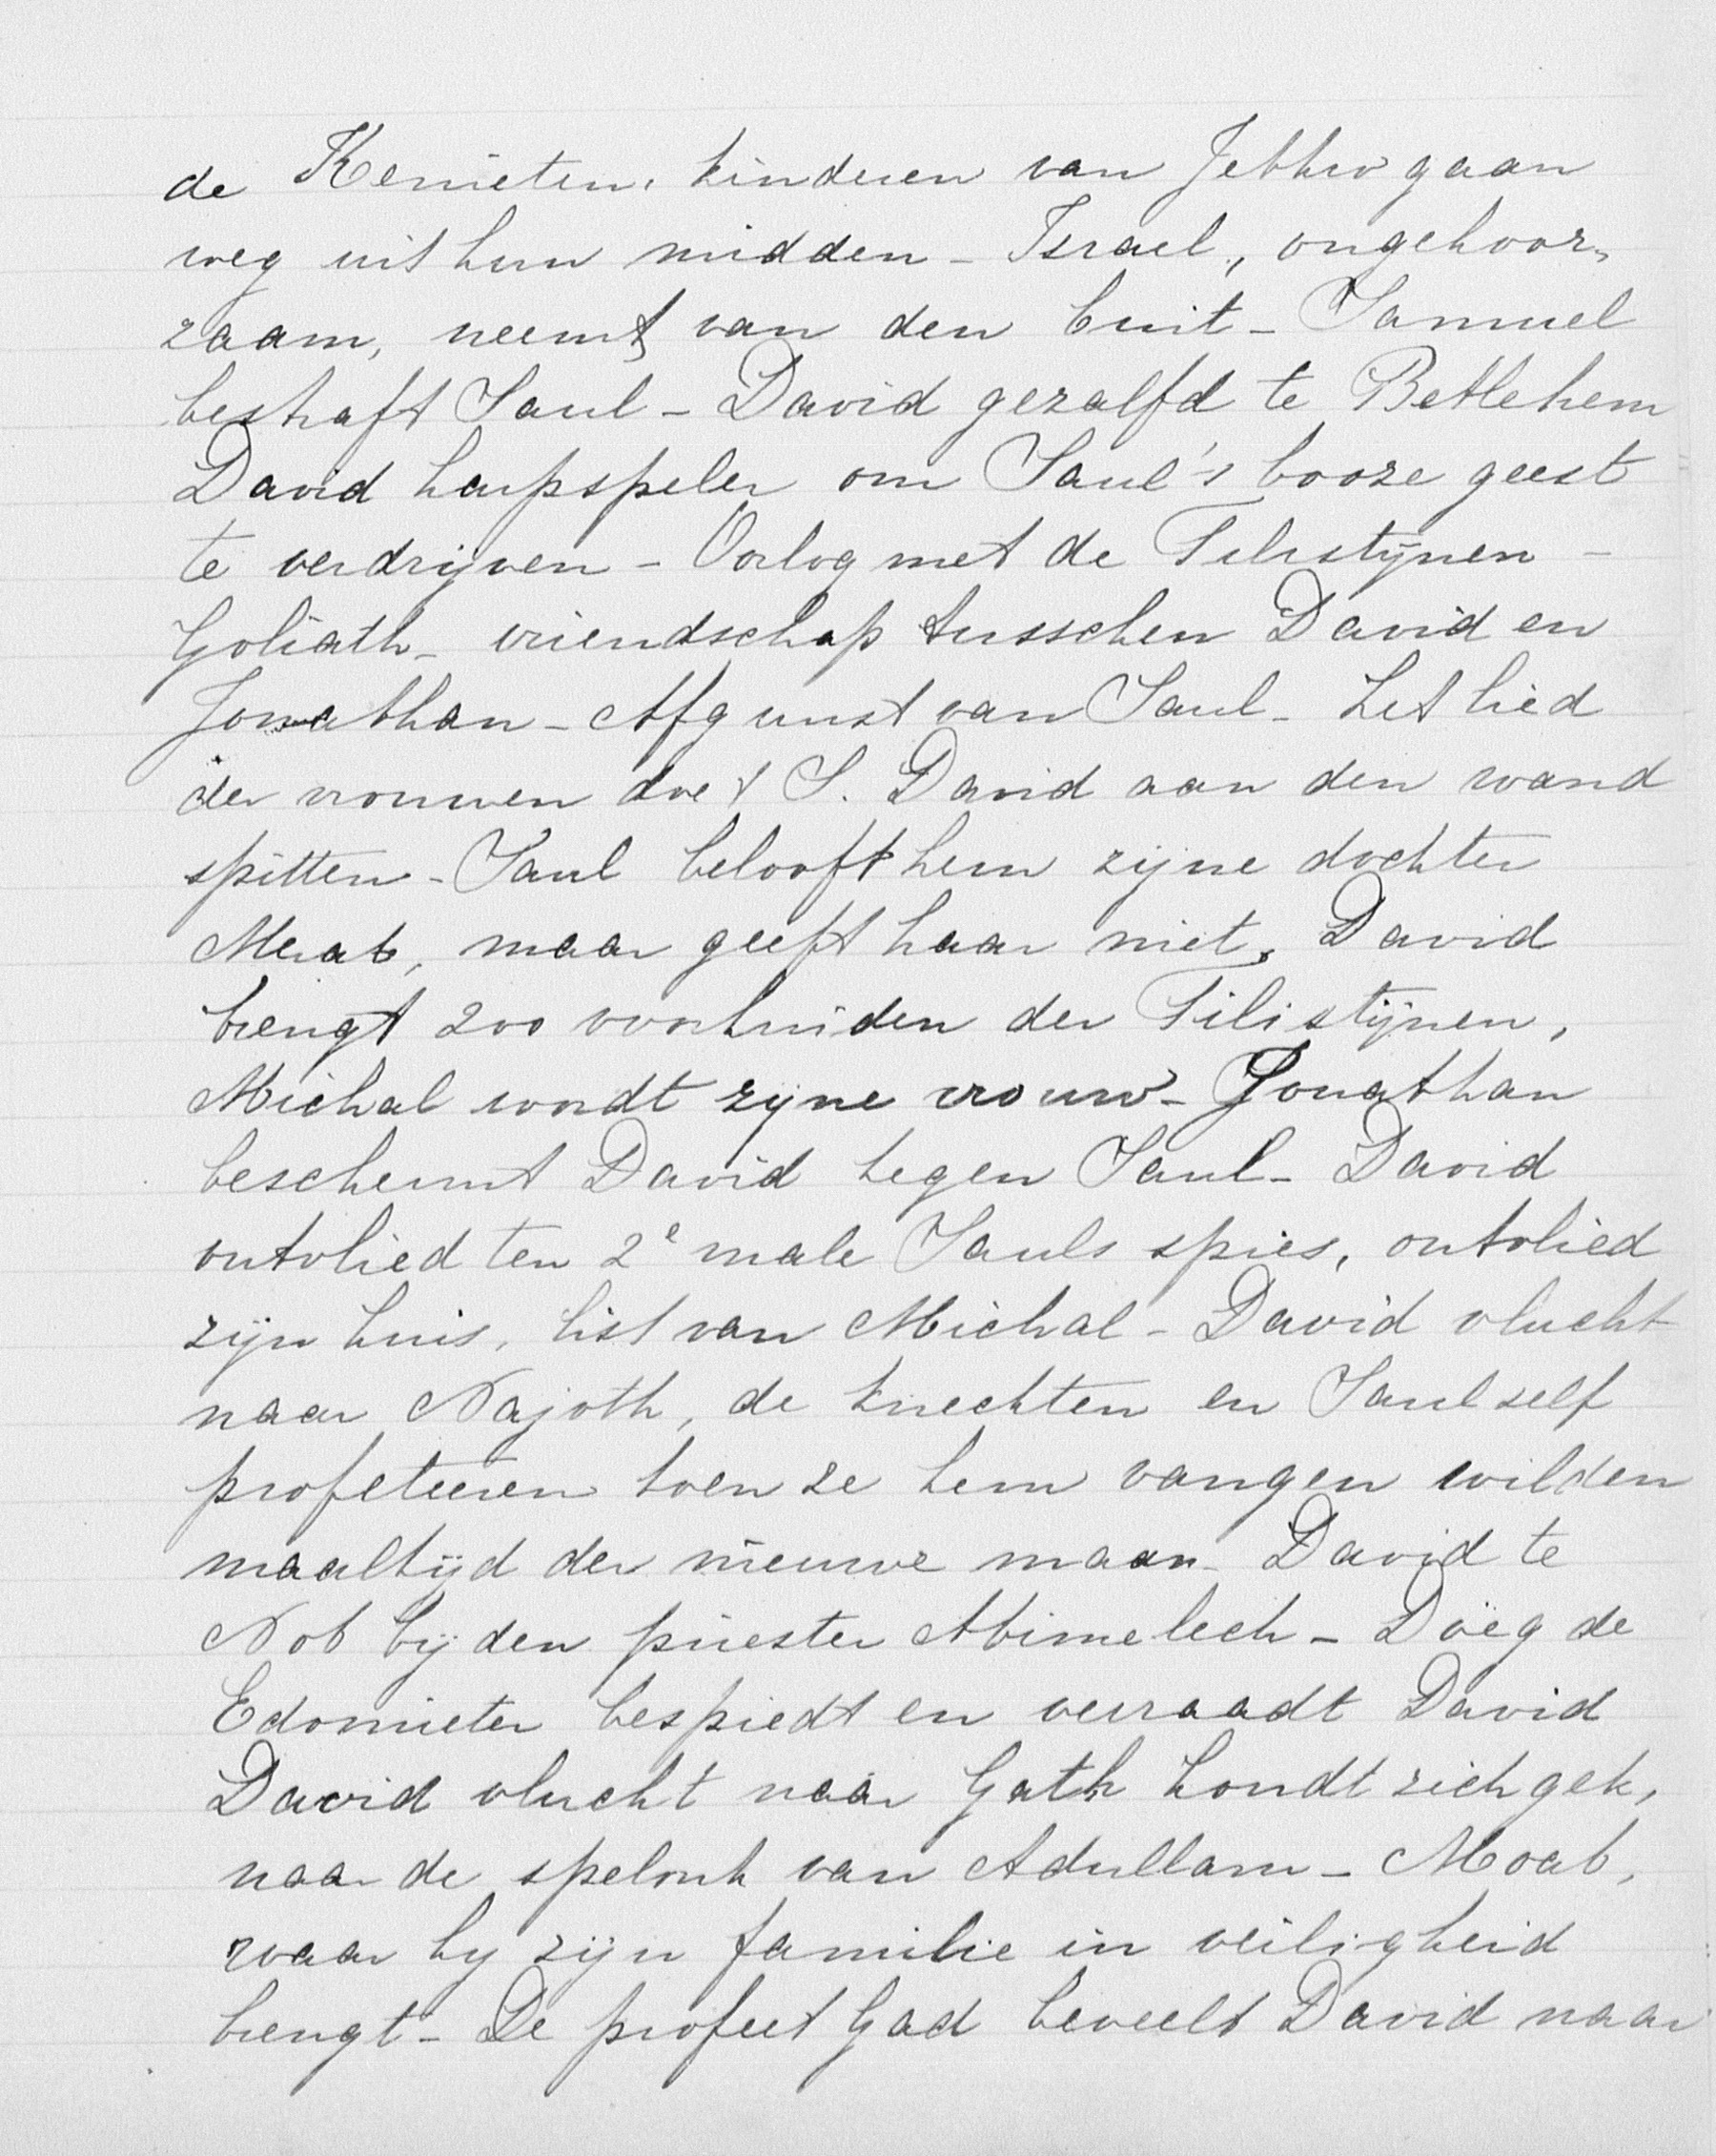 de Kenieten, kinderen van Jethro gaan
weg uit hun midden - Israel, ongehoor„
zaam, neemt van den buit - Samuel
bestraft Saul - David gezalfd te Betlehem
David harpspeler om Saul's booze geest
te verdrijven - Oorlog met de Filistijnen -
Goliath - vriendschap tusschen David en
Jonathan - Afgunst van Saul - het lied
der vrouwen doet S. David aan den wand
spitten - Saul belooft hem zijne dochter
Merab, maar geeft haar niet, David
brengt 200 voorhuiden der Filistijnen,
Michal wordt zijne vrouw - Jonathan
beschermt David tegen Saul - David
ontvlied ten 2e male Sauls spies, ontvlied
zijn huis, list van Michal - David vlucht
naar Najoth, de knechten en Saul self
profeteeren toen ze hem vangen wilden
maaltijd der nieuwe maan - David te
Nob bij den priester Abimelech - Doëg de
Edomieter bespiedt en verraadt David
David vlucht naar Gath houdt zich gek,
naar de spelonk van Adullam - Moab,
waar hy zijn familie in veiligheid
brengt - De profeet Gad beveelt David naar